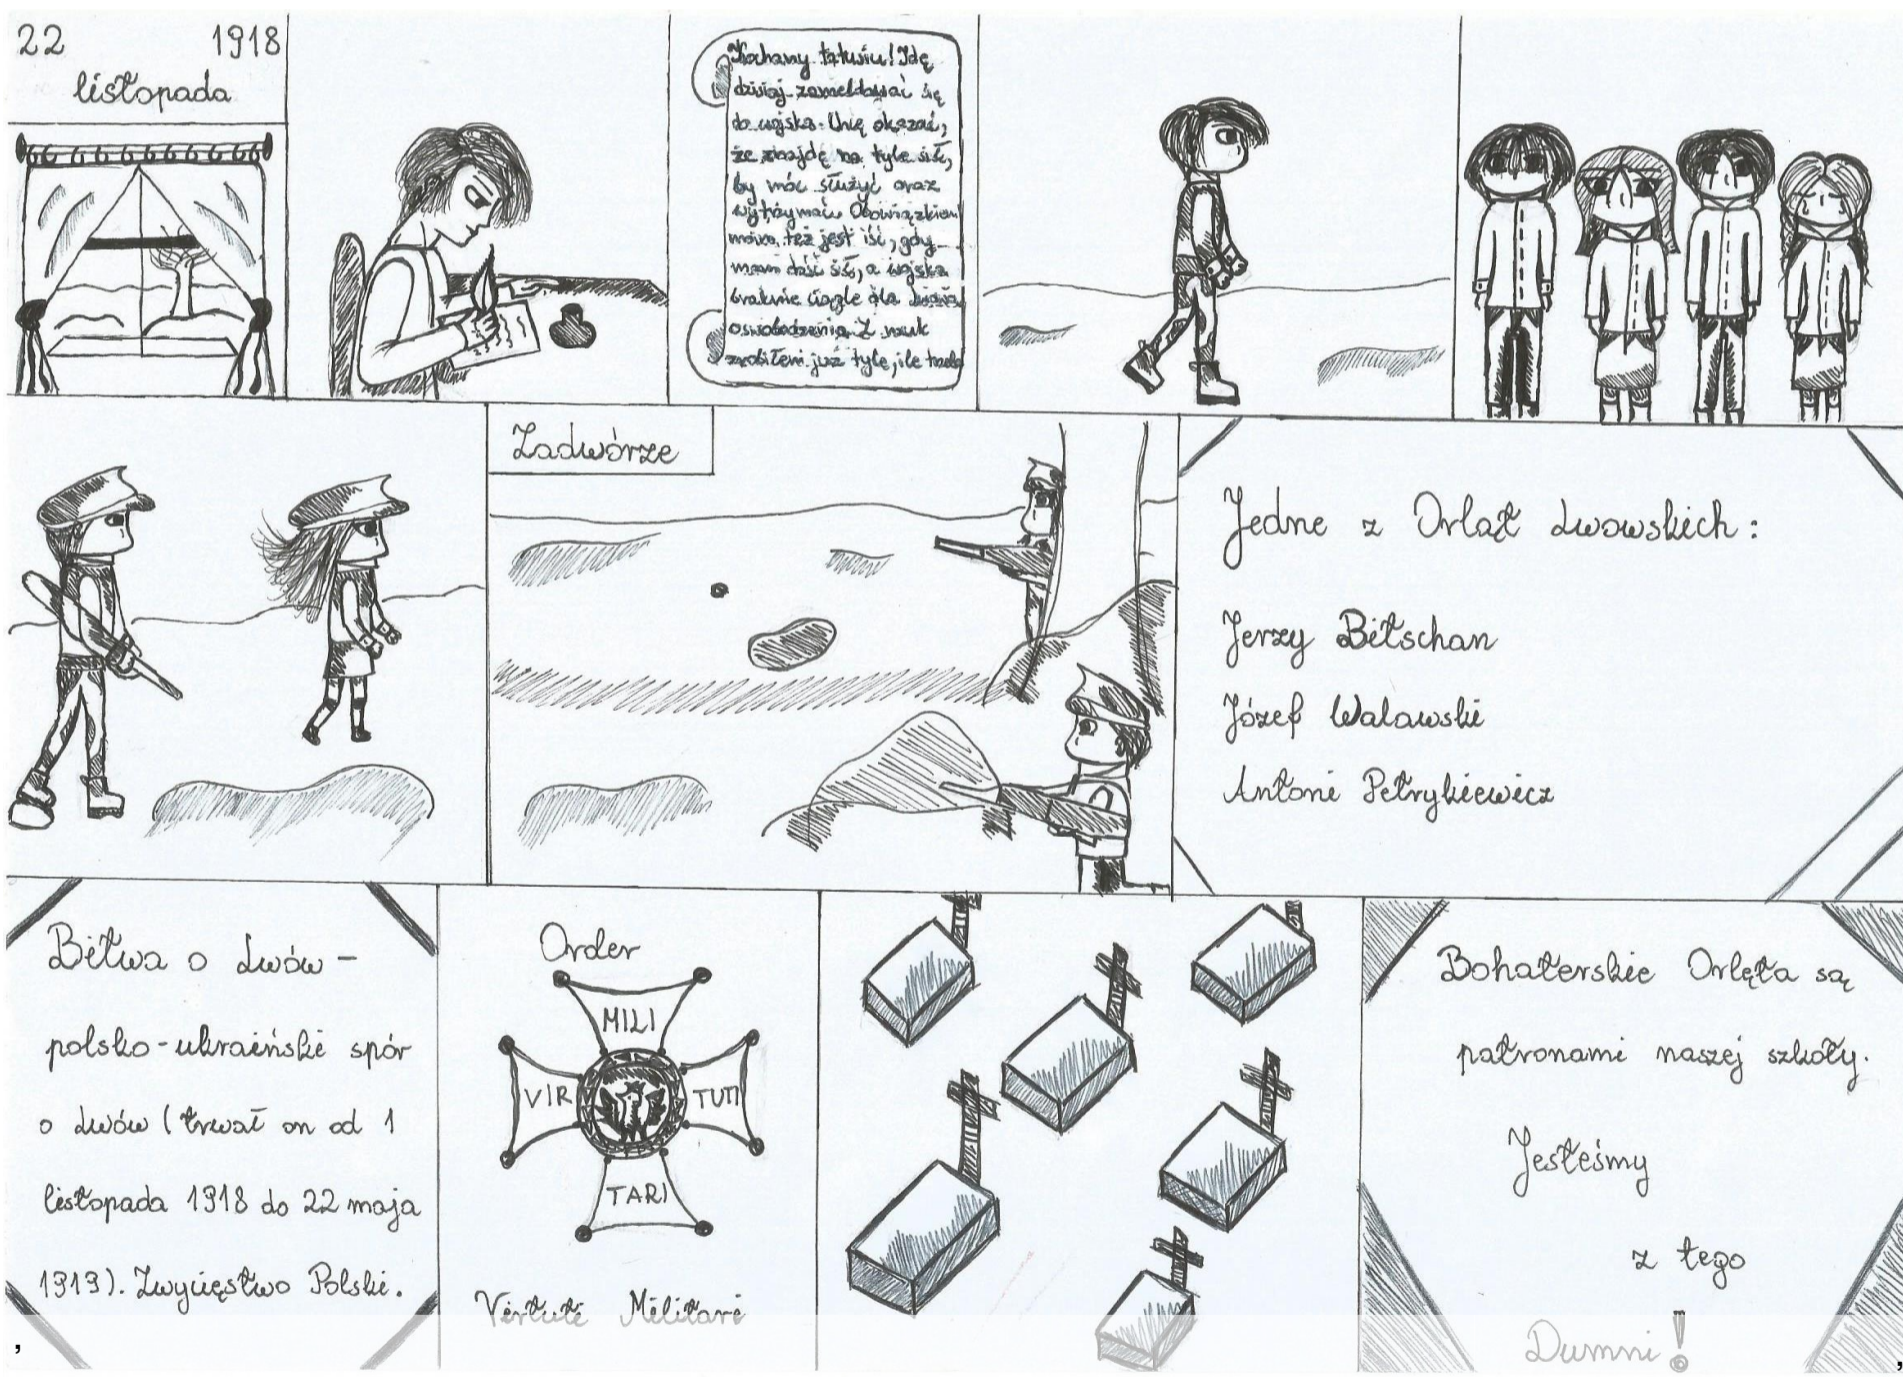 22 1918
listopada
Kochany tatusiu! Idę
dzisiaj zameldować się
do wojska. Chcę okazać,
że znajdę na tyle sił,
by móc służyć oraz
wytrzymać Obowiązkiem
moim też jest iść, gdy
mam dość sił, a wojska
braknie ciągle dla Lwowa
oswobodzenia. Z nauk
zrobiłem już tyle, ile trzeba
Zadwórze
Jedne z Orląt Lwowskich:
Jerzy Bitschan
Józef Walawski
Antoni Petrykiewicz
Bitwa o Lwów -
polsko-ukraiński spór
o Lwów (trwał on od 1
listopada 1918 do 22 maja
1919). Zwycięstwo Polski.
Order
MILI
VIR TUTI
TARI
Virtuti Militari
Bohaterskie Orlęta są
patronami naszej szkoły.
Jesteśmy
z tego
Dumni!